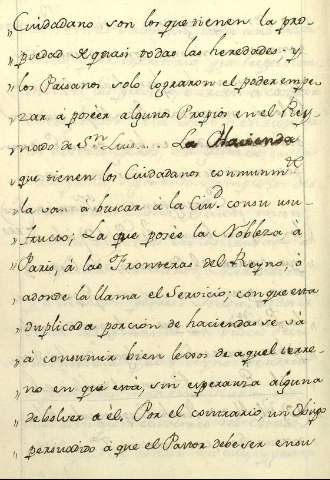 „ Ciudadano son los que tienen la pro-
„ piedad de quasi todas las heredades. y
„ los Paisanos solo lograron el poder empe-
„ zar á poséèr algunos Propios en el Rey-
„ nado de Sn. Luis.... La Hacienda
„ que tienen los Ciudadanos comunmte.
„ la van á buscar á la Ciud. con su usu-
„ fructo; La que posée la Nobleza á
„ Paris, á las Fronteras del Reyno, ò
„ adonde la llama el Servicio; con que esta
„ duplicada porción de haciendas se vá
„ á consumir bien lexos de aquel terre-
„ no en que está, sin esperanza alguna
„ de bolver a él. Por el contrario, un Obispo
„ persuadido à que el Pastor debe ser en su